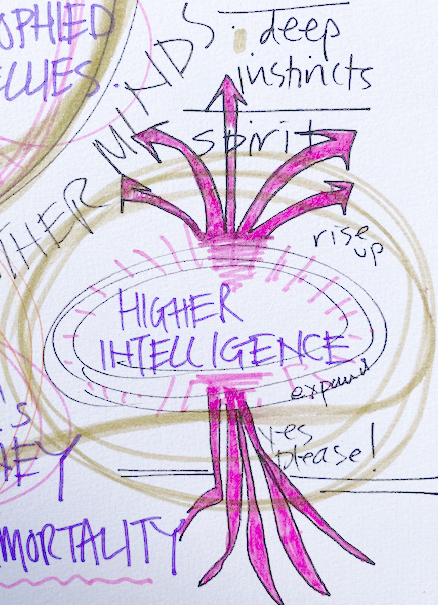 OPHIED
deep
instincts
spirit
THER MINDS
rise
up
HIGHER
INTELLIGENCE
expand
yes
please!
EY
MORTALITY